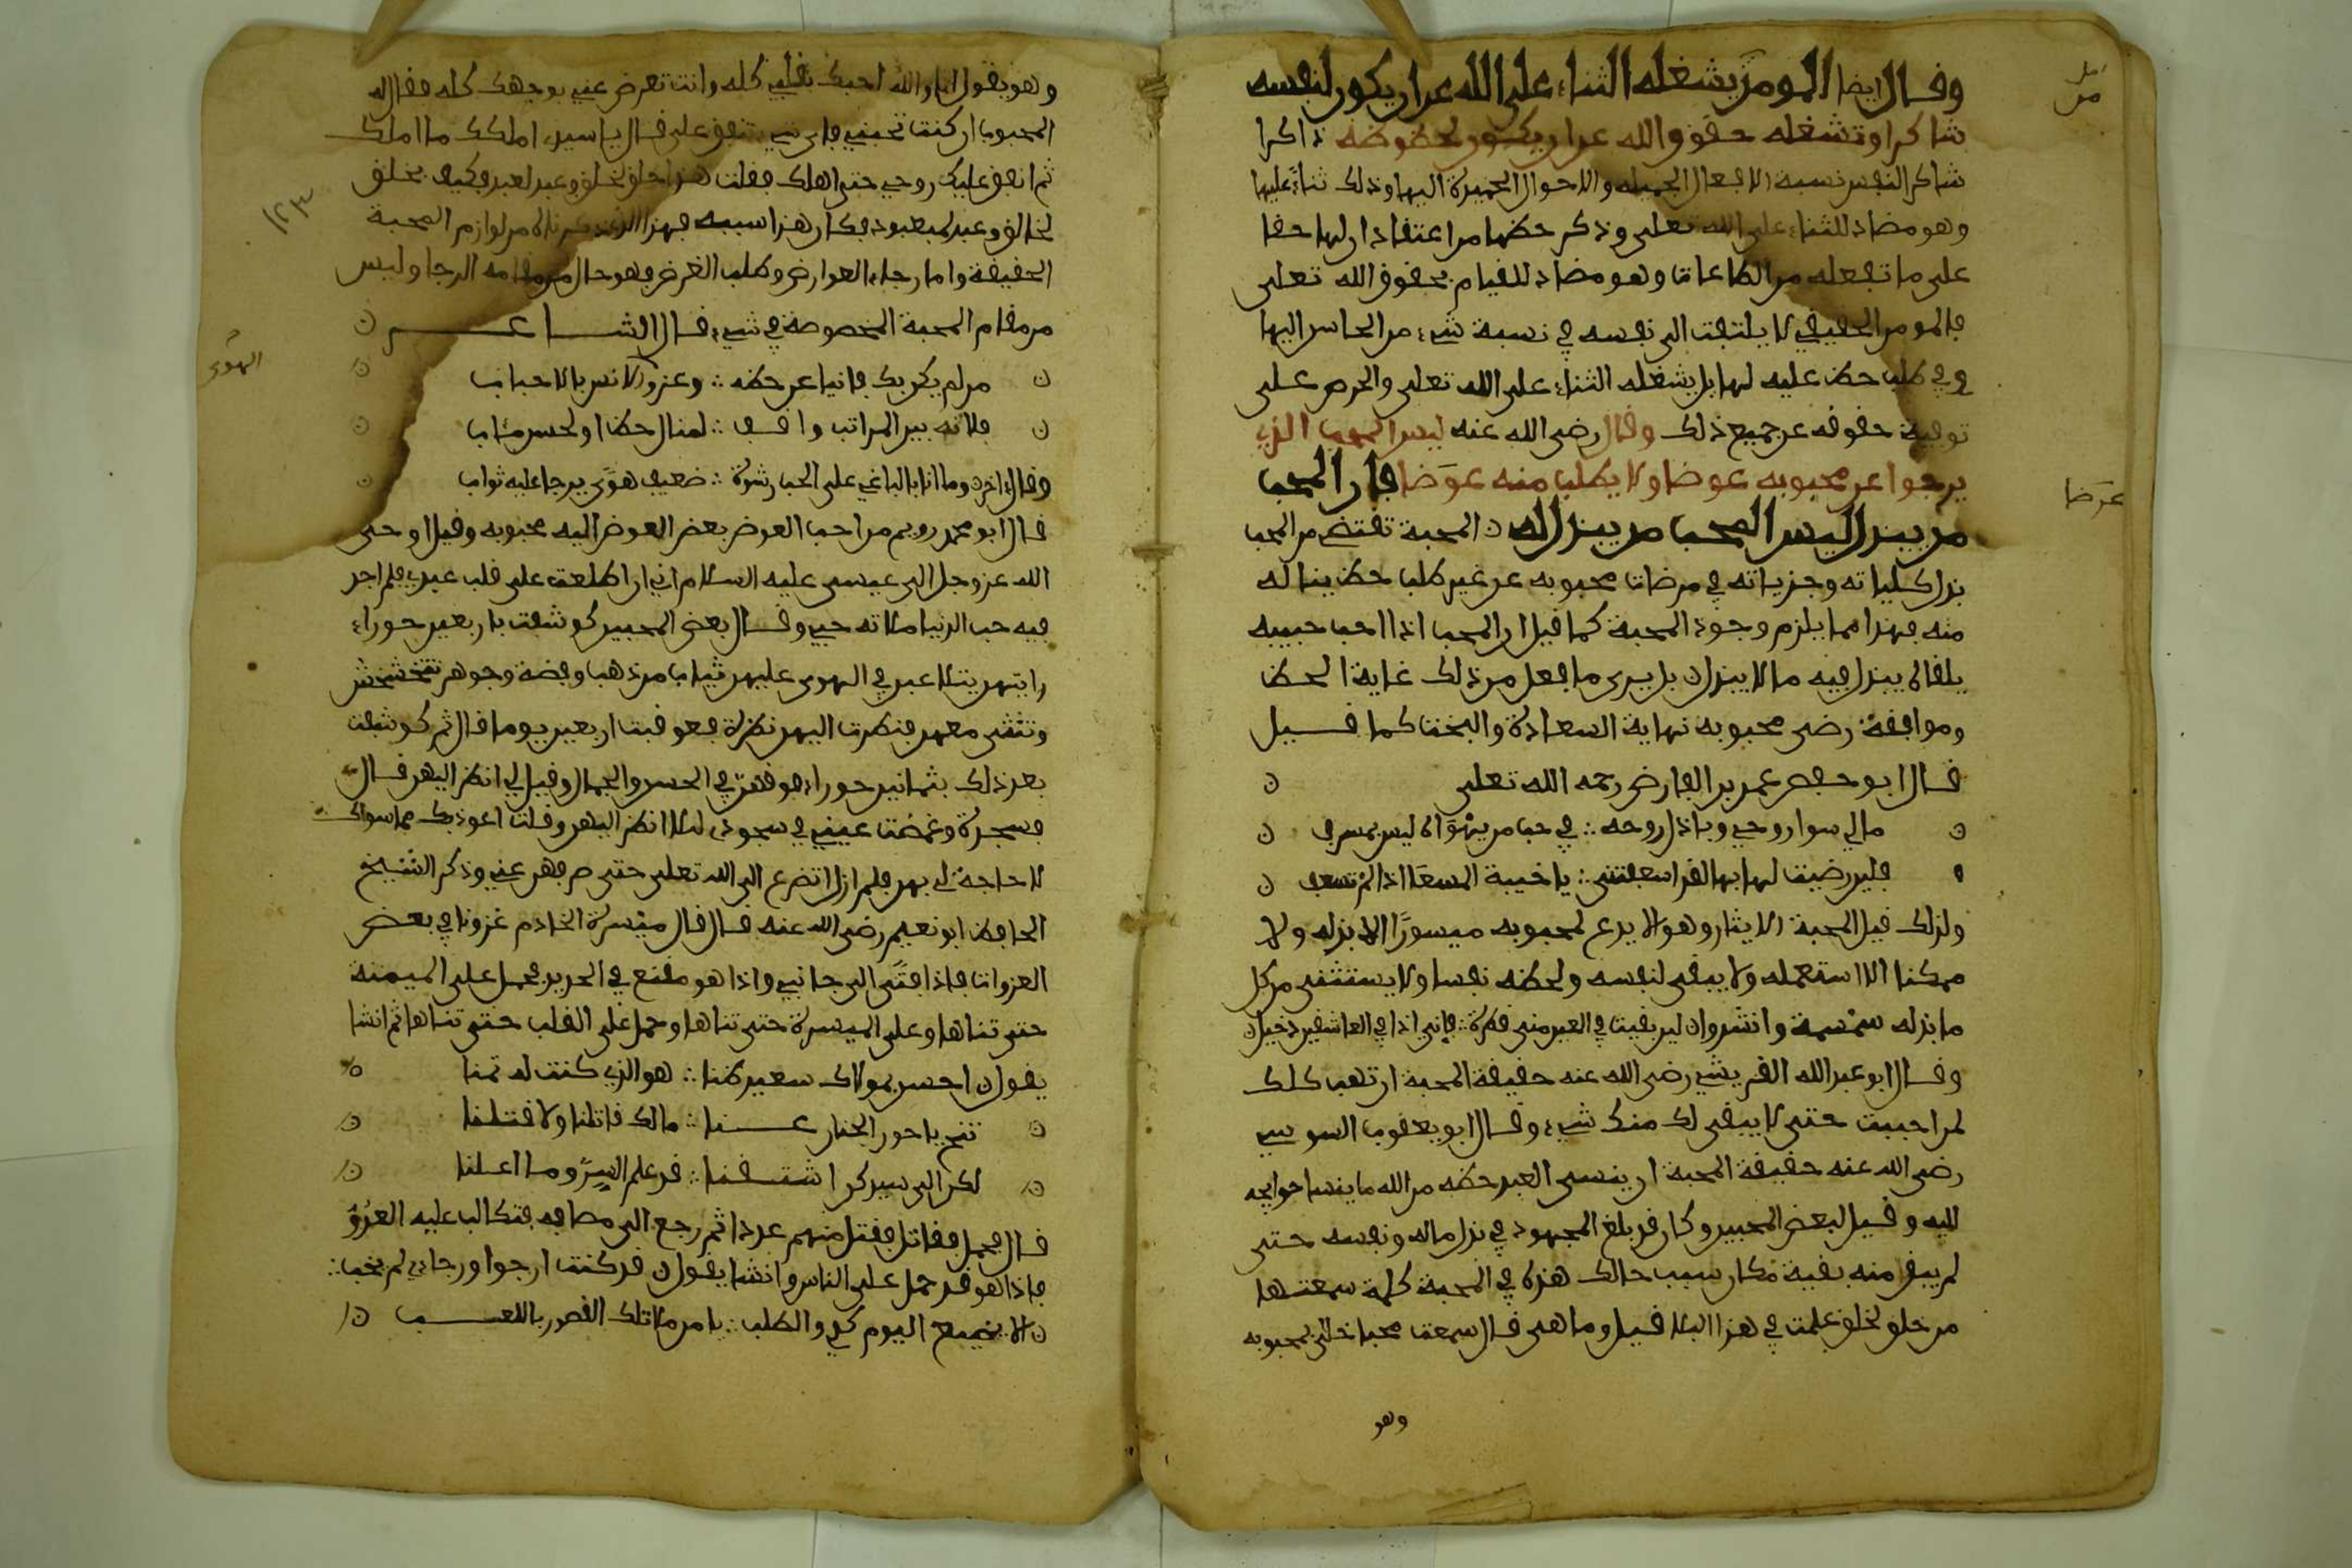 وقال ايضا المومن يشغله الثناء على الله عن ان يكون لنفسه
شاكرا وتشغله حقوق الله عن ان يكون لحظوظه ذاكرا
شاكر النفس نسبة الافعال الجميلة والاحوال الحميدة اليها وذلك ثناء عليها
وهو مضاد للثناء على الله تعلى وذكر حظها من اعتقاد ان لها حقا
على ما تفعله من الطاعات وهو مضاد للقيام بحقوق الله تعلى
فالمومن الحقيقي لا يلتفت الى نفسه في نسبة شيء من المحاسن اليها
وفي طلب حظ عليه لها بل يشغله الثناء على الله تعلى والحرص على
توفية حقوقه عن جميع ذلك وقال رضي الله عنه ليس المحب الذي
يرجوا عن محبوبه عوضا ولا يطلب منه عوضا فان المحب
من يبذل ليس المحب من يبذل له ن المحبة تقتضي من المحب
بذل كلياته وجزياته في مرضات محبوبه عن غير طلب حظ يناله
منه فهذا مما يلزم وجود المحبة كما قيل ان المحب اذا احب حبيبه
يلقاه يبذل فيه ما لا يبذل ن بل يرى ما فعل من ذلك غاية الحظ
وموافقة رضى محبوبه نهاية السعادة والبخت كما قيل
قال ابو حفص عمر بن الفارض رحمه الله تعلى ن
ن مالي سوا روحي وباذل روحه ∴ في حب من يهواه ليس بمسرف ن
فلين رضيت لها بها لقد اسعفتني ∴ يا خيبة المسعا اذا لم تسعف ن
ولذلك قيل المحبة الايثار وهو الا يدع لمحبوبه ميسورا الا بذله ولا
ممكنا الا استعمله ولا يبقى لنفسه ولحظه نفسا ولا يستثنى من كل
ما بذله سمسمة وانشدوا ن لين بقيت في العين منى قطرة ∴ فاني اذا في العاشقين دخيل ن
وقال ابو عبد الله القريشي رضي الله عنه حقيقة المحبة ان تهب كلك
لمن احببت حتى لا يبقى لك منك شيء وقال ابو يعقوب السوسي
رضي الله عنه حقيقة المحبة ان ينسى العبد حظه من الله ما ينسا حوايجه
اليه وقيل لبعض المحبين وكان قد بلغ المجهود في بذل ماله ونفسه حتى
لم يبق منه بقية ما كان سبب حالك هذه في المحبة كلمة سمعتها
من خلق لخلق عملت في هذا البلا قيل وما هى قال سمعت محبا خلى بمحبوبه
وهو
عوضا
وهو يقول انا والله احبك بقلبي كله وانت تعرض عني بوجهك كله فقال له
المحبوب ان كنت تحبني فاي شيء تنفق علي قال يا سيدي املكك ما املك
ثم انفق عليك روحي حتى اهلك فقلت هذا خلق لخلق وعبد لعبد فكيف بخلق
لخالق وعبد لمعبود فكان هذا سببه فهذا الذي ذكرناه من لوازم المحبة
الحقيقة واما رجاء العوارض وطلب الغرض فهو حال من مقامه الرجا وليس
من مقام المحبة المخصوصة في شيء قال الشاعر ن
ن من لم يكن بك فانيا عن حظه ∴ وعن الانس بالاحباب ن
ن فلانه بين المراتب واقف ∴ لمنال حظ او لحسن مئاب ن
وقال اخر ن وما انا بالباغي على الحب رشوة ∴ ضعيف هوى يرجا عليه ثواب ن
قال ابو محمد رويم من احب العوض بعض العوض اليه محبوبه وقيل اوحى
الله عز وجل الى عيسى عليه السلام اني اذا اطلعت على قلب عبدي فلم اجد
فيه حب الدنيا ملاته حبي وقال بعض المحبين كوشفت باربعين حوراء
رايتهن يتلاعبن في الهوى عليهن ثياب من ذهب وفضة وجوهر تتخشخش
وتتثنى معهن فنظرت اليهن نظرة فعوقبت اربعين يوما قال ثم كوشفت
بعد ذلك بثمانين حوراء فوقهن في الحسن والجمال وقيل لي انظر اليهن قال
فسجدت وغمضت عيني في سجودي لئلا انظر اليهن وقلت اعوذ بك مما سواك
لا حاجة لي بهن فلم ازل اتضرع الى الله تعلى حتى صرفهن عني وذكر الشيخ
الحافظ ابو نعيم رضي الله عنه قال قال ميسرة الخادم غزونا في بعض
الغزوات فاذا فتى الى جانبي واذا هو مقنع في الحديد فحمل على الميمنة
حتى ثناها وعلى الميسرة حتى ثناها وحمل على القلب حتى ثناها ثم انشا
يقول ن احسن بمولاك سعيد ظنا ∴ هو الذي كنت له تمنا
ن تنح يا حور الجنان عنا ∴ مالك قاتلنا ولا قتلنا ن
ن لكن الى سيدكن اشتقنا ∴ قد علم السر وما اعلنا ن
قال فحمل فقاتل فقتل منهم عددا ثم رجع الى مصافه فتكالب عليه العدو
فاذا هو قد حمل على الناس وانشا يقول ن قد كنت ارجوا ورجاءي لم يخب ∴
ن الا يضيع اليوم كدي والطلب ∴ يا من ملا تلك القصور باللعب ن
الهوى
١٢٣